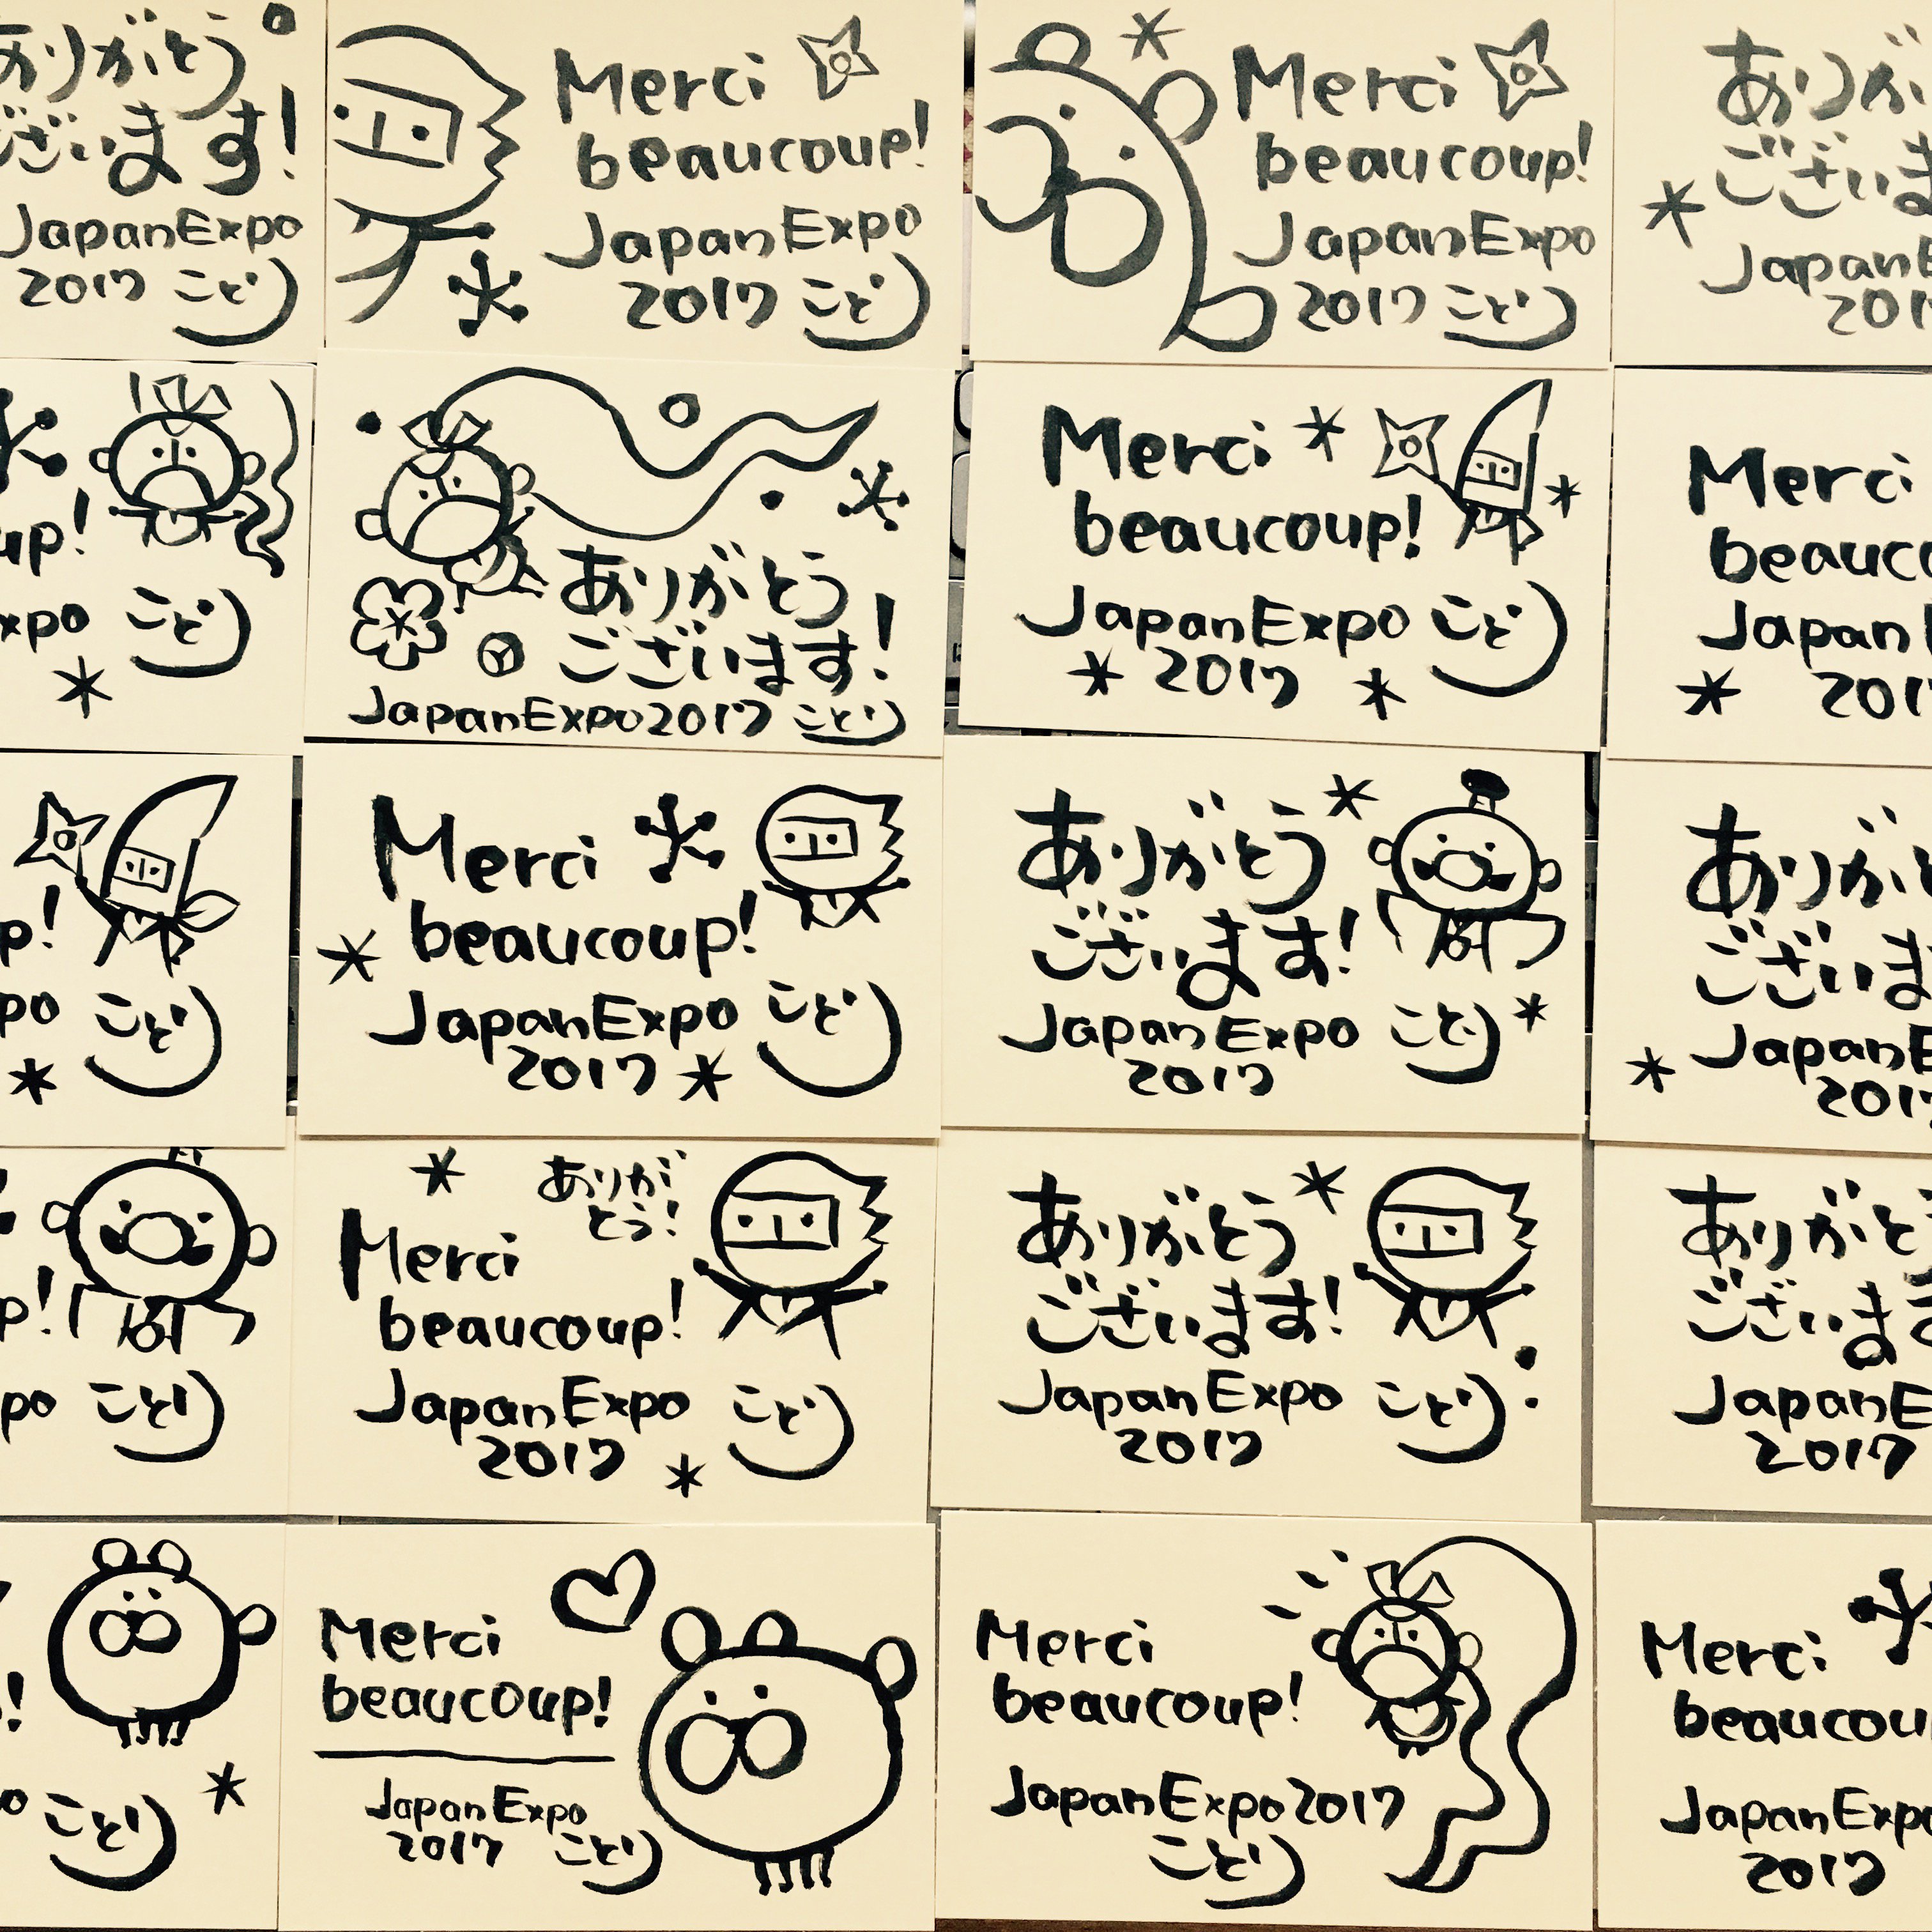 ありがとう
ございます!
JapanExpo
2017 ことり
Merci
beaucoup!
JapanExpo
2017 ことり
Merci
beaucoup!
JapanExpo
2017 ことり
ありが
ございま
Japan
201
up!
xpo ことり
ありがとう
ございます!
JapanExpo2017 ことり
Merci
beaucoup!
JapanExpo ことり
2017
Merci
beauc
Japan
201
p!
po ことり
Merci
beaucoup!
JapanExpo ことり
2017
ありがとう
ございます!
JapanExpo ことり
2017
ありが
ございま
JapanE
201
p!
po ことり
ありが
とう!
Merci
beaucoup!
JapanExpo ことり
2017
ありがとう
ございます!
JapanExpo ことり
2017
ありがと
ございま
JapanE
2017
!
o ことり
Merci
beaucoup!
JapanExpo
2017 ことり
Merci
beaucoup!
JapanExpo2017
ことり
Merci
beaucou
JapanExpo
2017